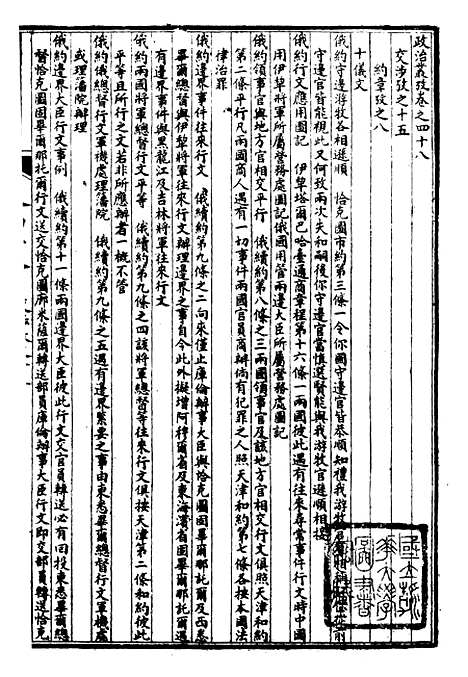 政治叢攷卷之四十八
交涉攷之十五
約章攷之八
十儀文
俄約守邊游牧各相遜順　恰克圖市約第三條一令你國守邊官皆恭順知禮我游牧官
守邊官皆能視此又何致兩次失和嗣後你守邊官當慎選賢能與我游牧官遜順相接
俄約行文應用圖記　伊犁塔爾巴哈臺通商章程第十六條一兩國彼此遇有往來尋常事件行文時中國
用伊犁將軍所屬營務處圖記俄國用管兩邊大臣所屬營務處圖記
俄約領事官與地方官相交平行　俄續約第八條之三兩國領事官及該地方官相交行文俱照天津和約
第二條平行凡兩國商人遇有一切事件兩國官員商辦倘有犯罪之人照天津和約第七條各按本國法
律治罪
俄約邊界事件往來行文　俄續約第九條之二向來僅止庫倫辦事大臣與恰克圖固畢爾那托爾及西悉
畢爾總督與伊犁將軍往來行文辦理邊界之事自今此外擬增阿穆爾省及東海濱省固畢爾那托爾遇
有邊界事件與黑龍江及吉林將軍往來行文
俄約兩國將軍總督行文平等　俄續約第九條之四該將軍總督等往來行文俱按天津第二條和約彼此
平等且所行之文若非所應辦者一概不管
俄約俄總督行文軍機處理藩院　俄續約第九條之五遇有邊界緊要之事由東悉畢爾總督行文軍機處
或理藩院辦理
俄約邊界大臣行文事例　俄續約第十一條兩國邊界大臣彼此行文交官員轉送必有回投東悉畢爾總
督恰克圖固畢爾那托爾行文送交恰克圖廓米薩爾轉送部員庫倫辦事大臣行文即交部員轉送恰克